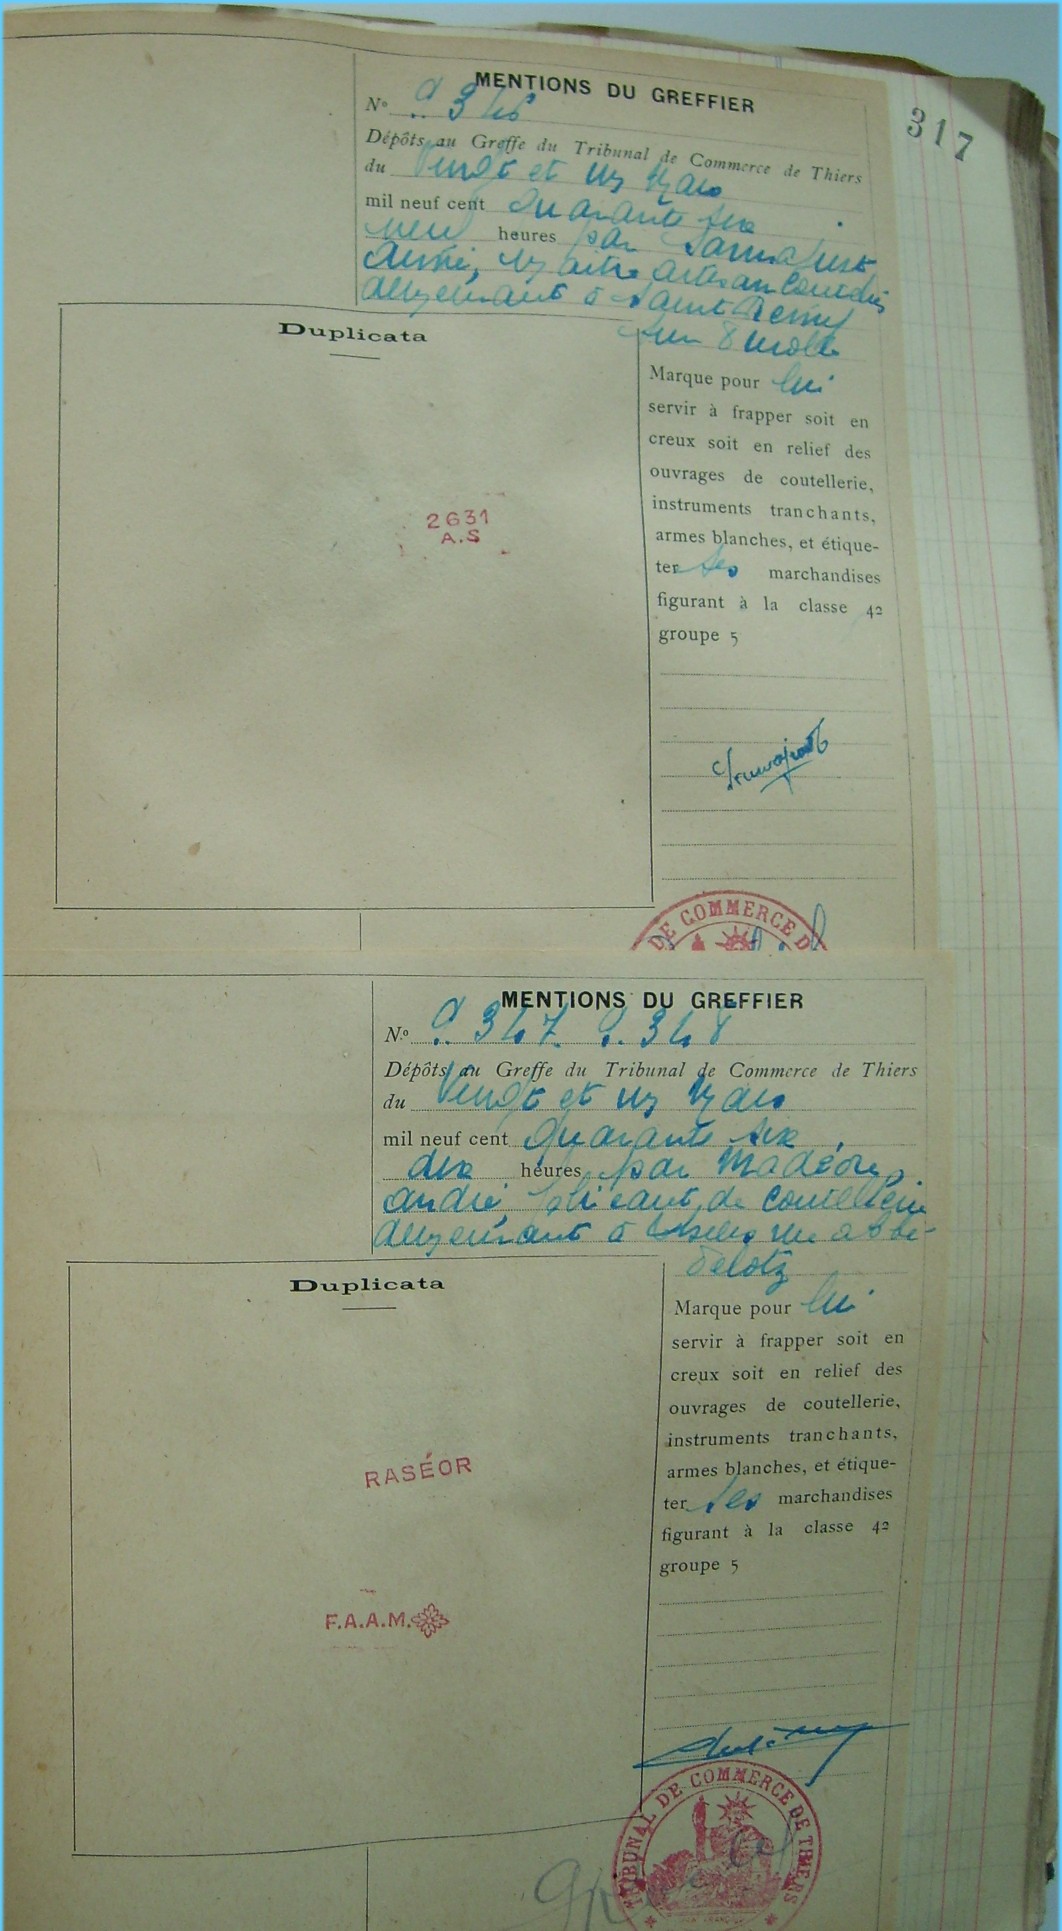 317
MENTIONS DU GREFFIER
N° 9.346
Dépôts au Greffe du Tribunal de Commerce de Thiers
du vingt et un mars
mil neuf cent quarante six
neuf heures par
aimé, artisan coutelier
demeurant à Saint Remy
sur Durolle
Duplicata
2631
A.S
Marque pour lui
servir à frapper soit en
creux soit en relief des
ouvrages de coutellerie,
instruments tranchants,
armes blanches, et étique-
ter ses marchandises
figurant à la classe 42
groupe 5
DE COMMERCE D
MENTIONS DU GREFFIER
N° 9.347. 9.348
Dépôts au Greffe du Tribunal de Commerce de Thiers
du vingt et un mars
mil neuf cent quarante six,
dix heures par Madéore,
andré, fabricant de coutellerie
demeurant à Thiers rue abbé
Delotz
Duplicata
RASÉOR
F.A.A.M.
Marque pour lui
servir à frapper soit en
creux soit en relief des
ouvrages de coutellerie,
instruments tranchants,
armes blanches, et étique-
ter ses marchandises
figurant à la classe 42
groupe 5
TRIBUNAL DE COMMERCE DE THIERS